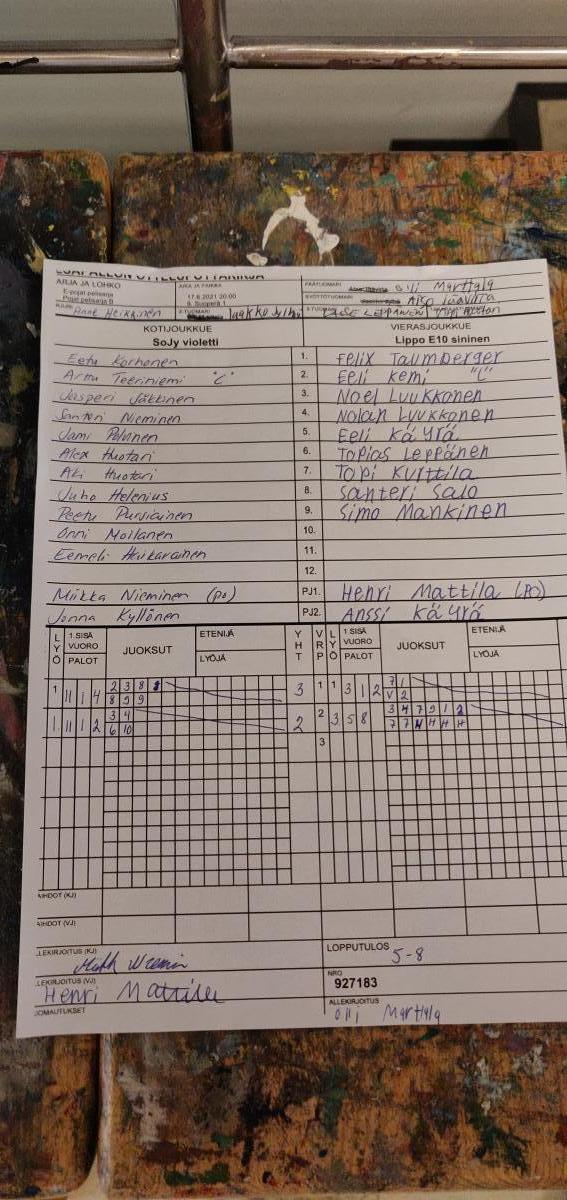 ARJA JA LOHKO
E-pojat pelisarja
Pojat pelisarja B
AIKA JA PAIKKA
17.6.2021 20:00
9. Superpesis 1
PÄÄTUOMARI Olli Marttala
SYÖTTÖTUOMARI
Anne Heikkinen
KOTIJOUKKUE
SoJy violetti
VIERASJOUKKUE
Lippo E10 sininen
Eetu Korhonen 1. Felix Taumberger
Arttu Teeriniemi "C" 2. Eeli Kemi "C"
Jasperi Jäkkinen 3. Noel Luukkonen
Santeri Nieminen 4. Nolan Luukkonen
Jami Polvinen 5. Eeli Käyrä
Alex Huotari 6. Topias Leppänen
Aki Huotari 7. Topi Kurttila
Juho Helenius 8. Santeri Salo
Peetu Pursiainen 9. Simo Mankinen
Onni Moilanen 10.
Eemeli Haukarainen 11.
12.
Miikka Nieminen (PO) PJ1. Henri Mattila (PO)
Jonna Kyllönen PJ2. Anssi Käyrä
LYÖ 1.SISÄ VUORO PALOT JUOKSUT ETENIJÄ LYÖJÄ YHT VRP LYÖ 1.SISÄ VUORO PALOT JUOKSUT ETENIJÄ LYÖJÄ
1 11 1 4 2 3 8 3 1 1 3 1 2 7 1
8 9 9 V 2
1. 11 1 2 3 4 2 2 3 5 8 3 4 7 9 1 2
6 10 7 7 H H H H
3
AIHDOT (KJ)
AIHDOT (VJ)
LEKIRJOITUS (KJ)
LOPPUTULOS 5-8
LEKIRJOITUS (VJ) Henri Mattila
NRO
927183
JOMAUTUKSET
ALLEKIRJOITUS
Olli Marttala